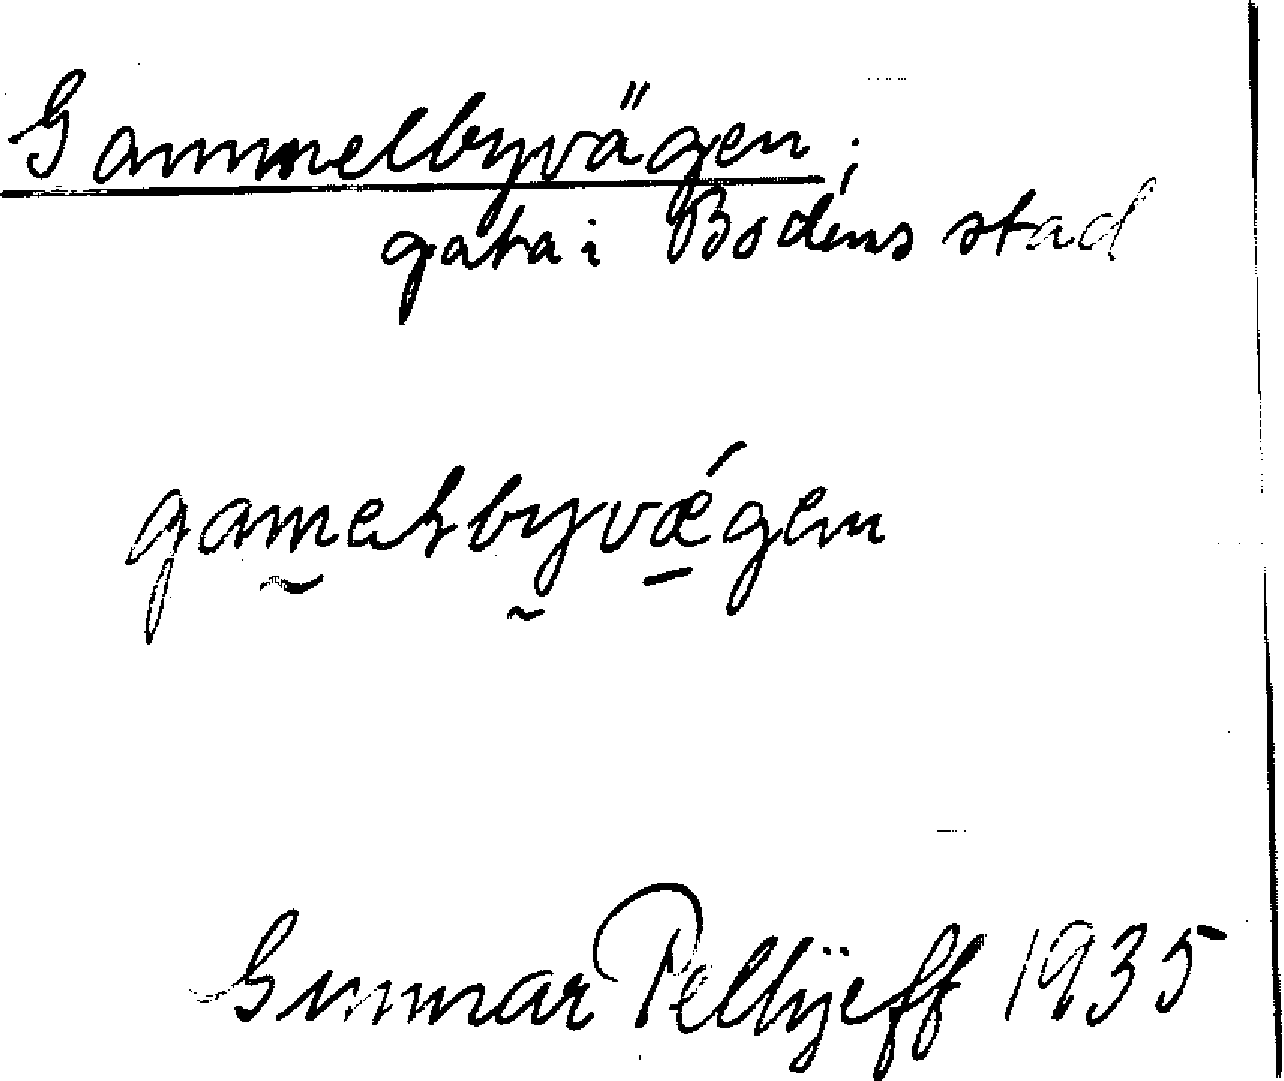 Gammelbyvägen;
gata i Bodens stad
gamelbyvǽgen
Gunnar Pellijeff 1935